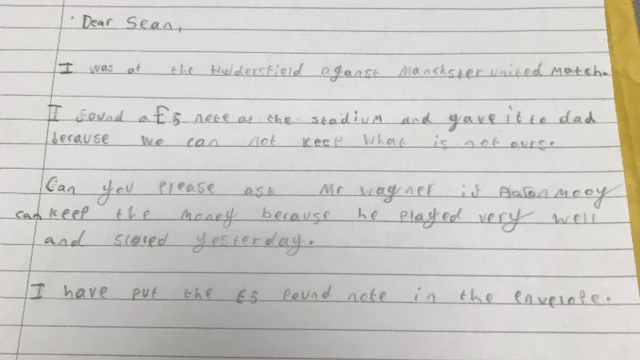 Dear Sean,
I was at the Huddersfield aganst Manchster united match.
I found a £5 note at the stadium and gave it to dad
because we can not keep what is not ours.
Can you please ask Mr Wagner if Aaron Mooy
can keep the money because he played very well
and scored yesterday.
I have put the £5 pound note in the envelope.